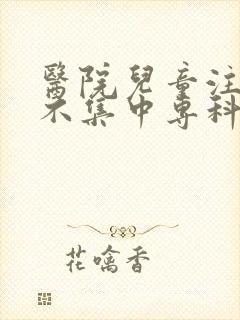 醫院兒童注
不集中專科
花噙香